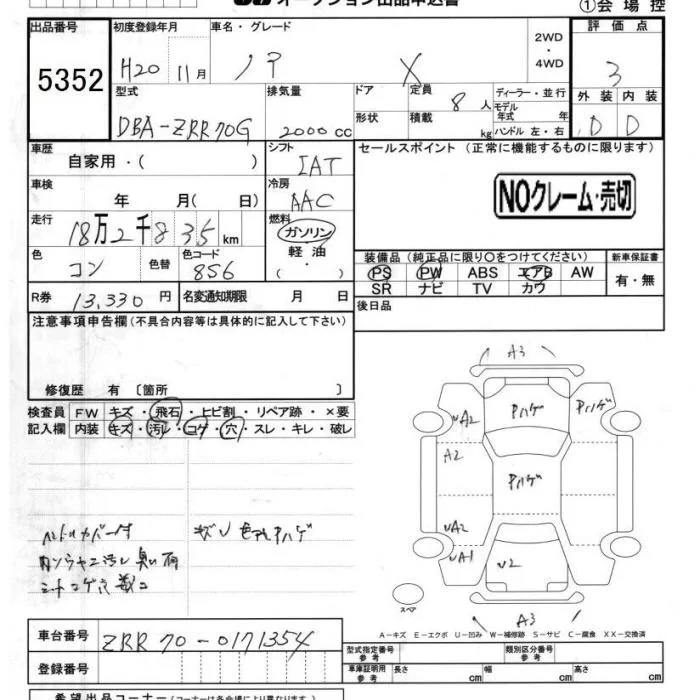 ①会場控
出品番号 初度登録年月 車名・グレード 評価点
5352 H20 11月 ノア X 2WD・4WD 3
型式 排気量 ドア 定員 8人 ディーラー・並行 外装 内装
DBA-ZRR70G 2000cc 形状 積載 kg モデル年式 年 D D
ハンドル 左・右
車歴 シフト セールスポイント (正常に機能するものに限ります)
自家用・( ) IAT
車検 冷房 NOクレーム・売切
年 月( 日) AAC
走行 燃料
18万2千835km ガソリン・軽油・( )
色 色替 色コード 装備品(純正品に限り○をつけてください) 新車保証書
コン 856 PS PW ABS エアB AW 有・無
SR ナビ TV カワ
R券 13,330円 名変通知期限 月 日 後日品
注意事項申告欄(不具合内容等は具体的に記入して下さい)
修復歴 有 〔箇所 〕
検査員 FW キズ・飛石・ヒビ割・リペア跡・×要
記入欄 内装 キズ・汚レ・コゲ・穴・スレ・キレ・破レ
A3
Pハゲ Pハゲ
A2
A2
Pハゲ
A2
A1
A3
スペア
A−キズ E−エクボ U−凹み W−補修跡 S−サビ C−腐食 XX−交換済
車台番号 ZRR70-0171354
登録番号
型式指定番号 参考 類別区分番号 参考
車庫証明用 参考 長さ cm 幅 cm 高さ cm